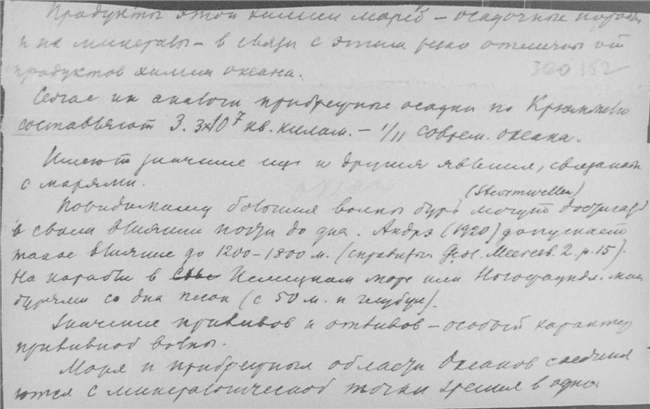 Продукты этой химии морей – осадочные породы
и их минералы – в связи с этим резко отличны от
продуктов химии океана.
300 152
Сейчас их аналоги прибрежные осадки по Крюммелю
составляют 3.3×10⁷ кв. килом. – 1/11 соврем. океана.
Имеют значение еще и другие явления, связанные
с морями.
(Sturmwellen)
Повидимому большие волны бурь могут достигать
в своем влиянии почти до дна. Андрэ (1920) допускает
такое влияние до 1200-1800 м. (справиться Geol. Meeresb. 2. p. 15).
На корабли в Немецком море или Ньюфаундл.
бурями со дна песок (с 50 м. и глубже).
Значение приливов и отливов – особый характер
приливной волны.
Моря и прибрежные области Океанов соединя
ются с минералогической точки зрения в одно